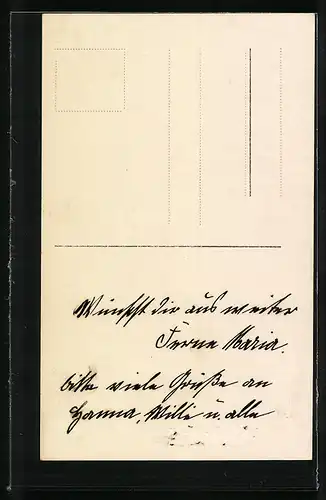 Wünscht dir aus weiter
Ferne Maria.
bitte viele Grüße an
Hanna, Willi u. alle